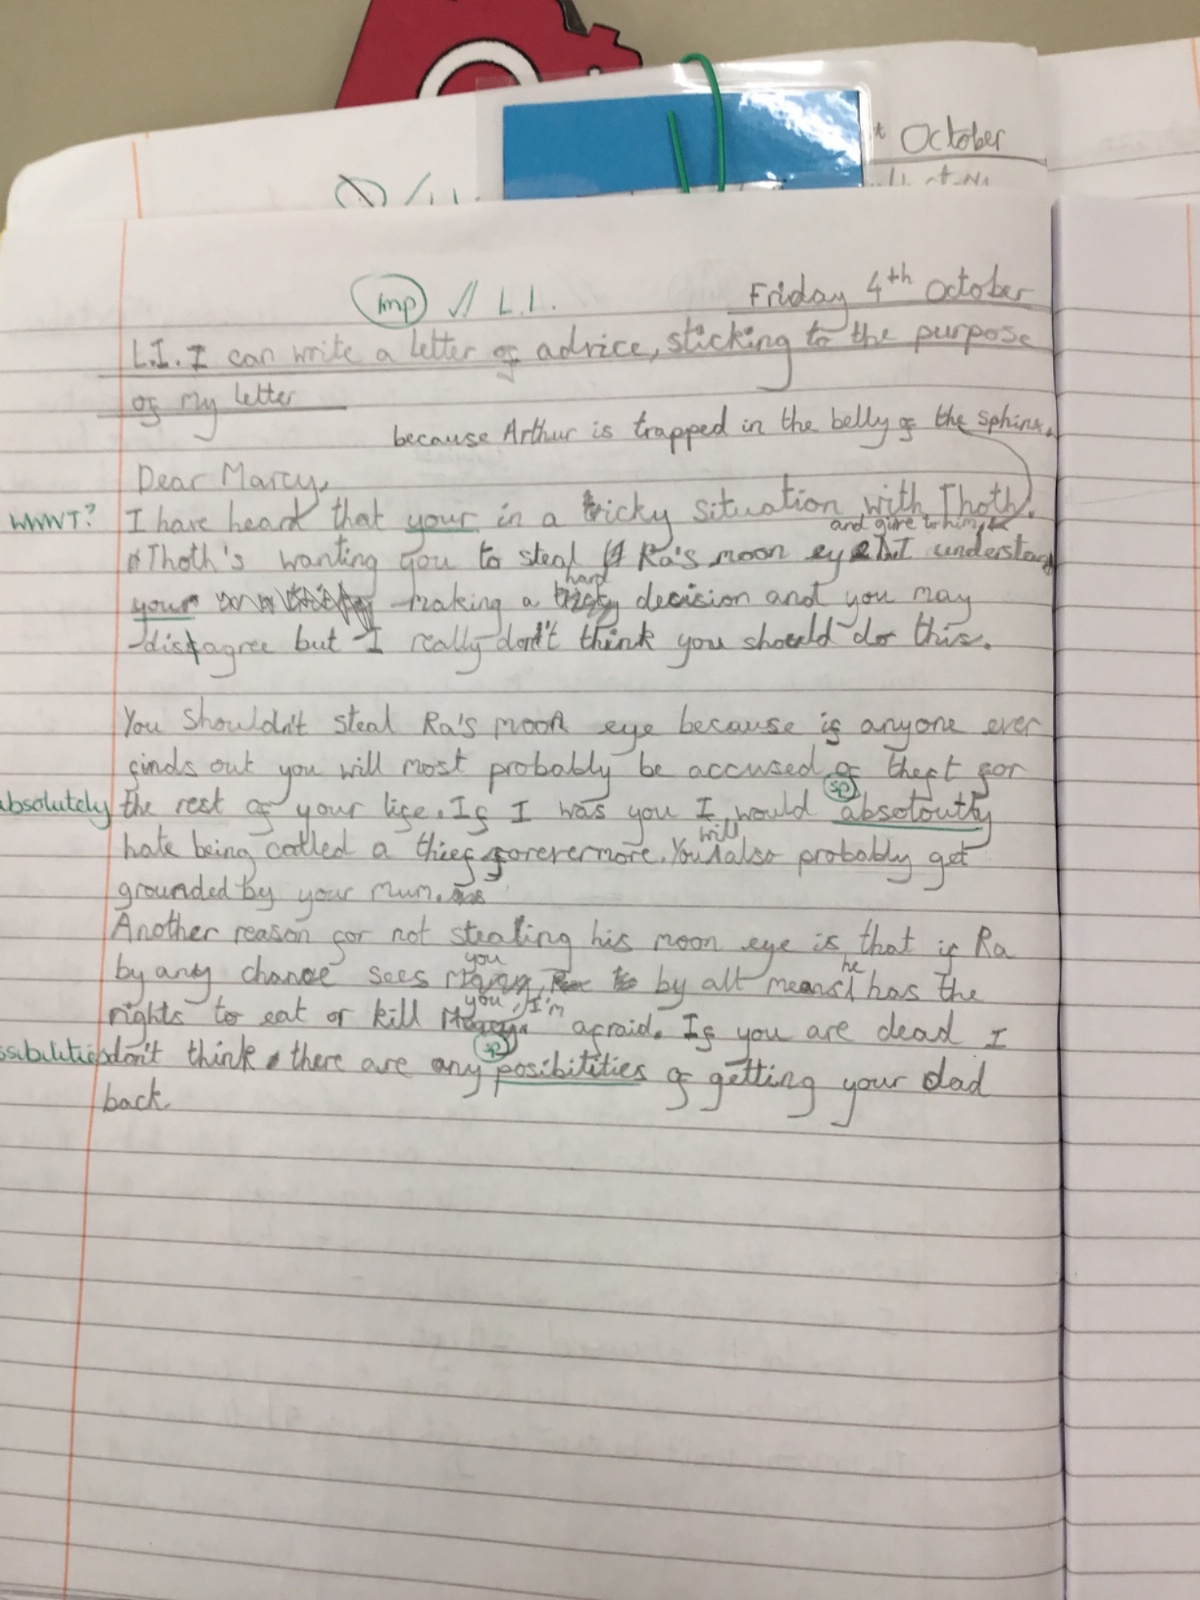 October
Imp // L.I.
Friday 4th October
L.I. I can write a letter of advice, sticking to the purpose
of my letter
because Arthur is trapped in the belly of the sphinx.
Dear Marcy,
WWWT?
I have heard that your in a tricky situation with Thoth.
and give to him
Thoth's wanting you to steal Ra's moon eye I understand
hard
your making a decision and you may
disagree but I really don't think you should do this.
You shouldn't steal Ra's moon eye because if anyone ever
finds out you will most probably be accused of theft for
sp
absolutely
the rest of your life. If I was you I would absoloutly
will
hate being called a thief forevermore. You also probably get
grounded by your mum.
Another reason for not stealing his moon eye is that if Ra
you he
by any chance sees by all means has the
you, I'm
rights to eat or kill afraid. If you are dead I
sp
ssibilities
don't think there are any posibilities of getting your dad
back.